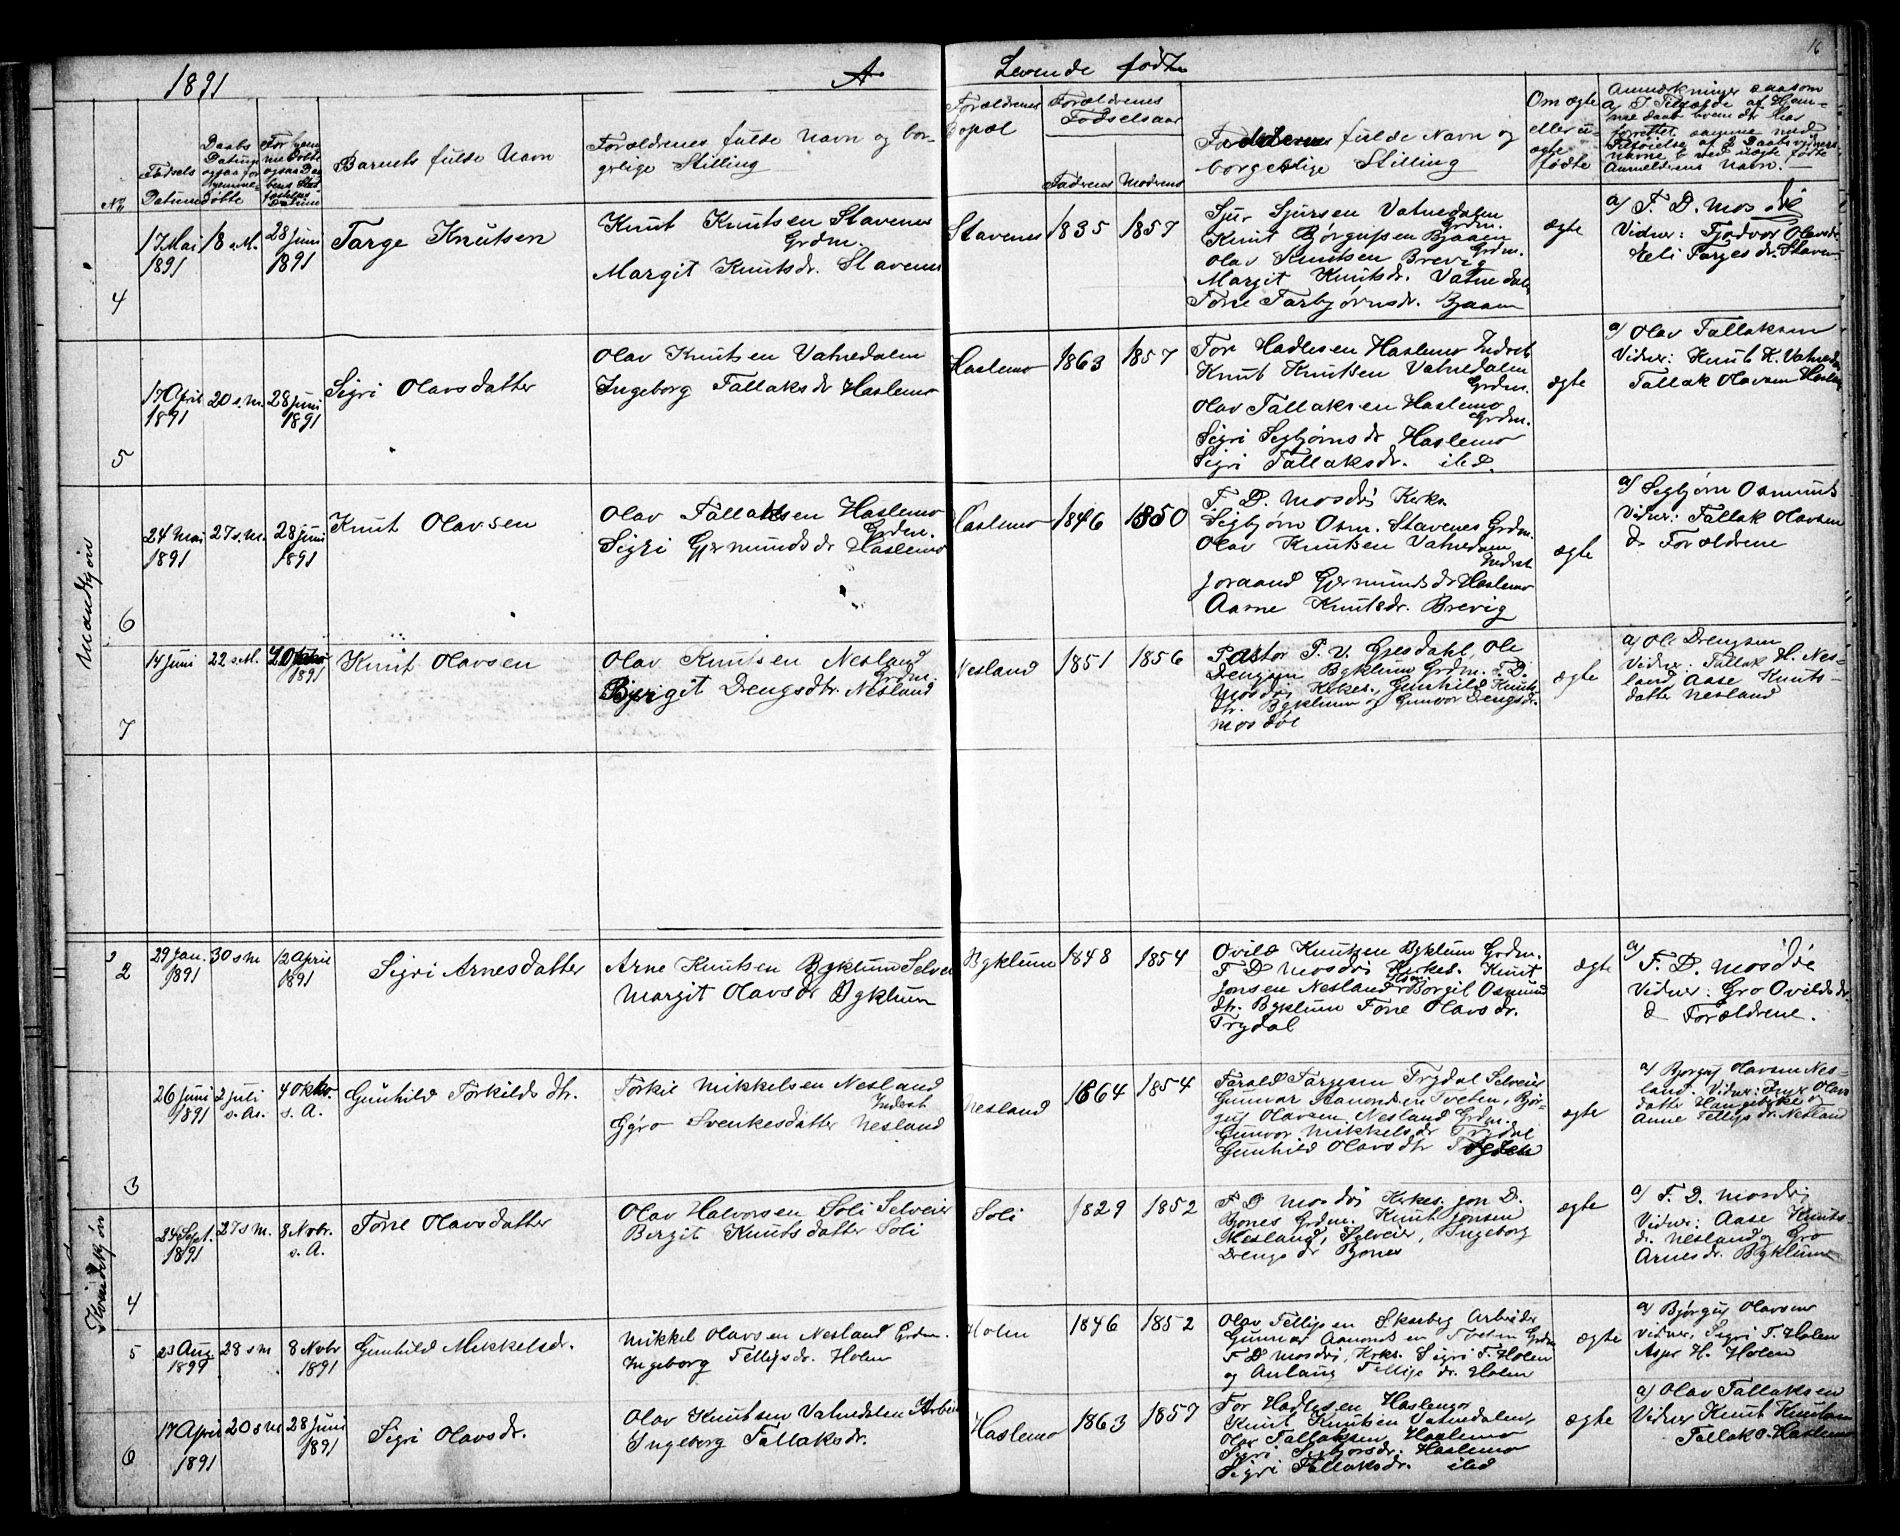 16
1891
A
Levende fødte
No
Fødsels Datum
Daabs Datum
Barnets fulde Navn
Forældrenes fulde Navn og bor-
gerlige Stilling
Forældrenes
Bopæl
Forældrenes
Fødselsaar
Faderens Moderens
Faddernes fulde Navn og
borgerlige Stilling
Om ægte
eller u-
ægte
fødte
Anmærkninger saasom
a, I Tilfælde af Hjem-
medaab hvem der har
forrettet samme med
Tilføielse af 2 Daabsvidners
Navne b, ved uægte fødte
Anmelderens Navn.
Mandkjøn
4
17 Mai
1891
18 s.M.
28 Juni
1891
Targe Knutsen
Knut Knutsen Stavenes
Grdm.
Margit Knutsdr. Stavenes
Stavenes
1835
1857
Sjur Sjursen Vatnedalen
Grdm.
Knut Bjørgufsen Bjaaen
Grdm.
Olav Knutsen Brevig
Margit Knutsdr. Vatnedalen
Tone Tarbjørnsdr. Bjaaen
ægte
a) T. D. Mosdøl
Vidner: Tjodvor Olavsdr.
Eli Targesdr. Stavenes
5
17 April
1891
20 s.M.
28 Juni
1891
Sigri Olavsdatter
Olav Knutsen Vatnedalen
Ingeborg Tallaksdr Haslemo
Haslemo
1863
1857
Tor Hadlesen Haslemo Inderst
Knut Knutsen Vatnedalen
Grdm.
Olav Tallaksen Haslemo
Grdm.
Sigri Segbjørnsdr Haslemo
Sigri Tallaksdr. ibd.
ægte
a) Olav Tallaksen
Vidner: Knut K. Vatnedalen
Tallak Olavsen Haslemo
6
24 Mai
1891
27 s.M.
28 Juni
1891
Knut Olavsen
Olav Tallaksen Haslemo
Grdm.
Sigri Gjermundsdr Haslemo
Haslemo
1846
1850
T. D. Mosdøl Kirkes.
Segbjørn Osm. Stavenes Grdm.
Olav Knutsen Vatnedalen
Inderst
Joraand Gjermundsdr Haslemo
Aarne Knutsdr. Brevig
ægte
a) Segbjørn Osmunds
Vidner: Tallak Olavsen
& Forældrene
7
14 Juni
22 s.M.
1891
Knut Olavsen
Olav Knutsen Nesland
Grdm.
Birgit Drengsdtr. Nesland
Nesland
1851
1856
Pastor P. V. Gjesdahl, Ole
Drengsen Byklum Grdm. T. D.
Mosdøl Kirkes., Gunhild Knuts-
dtr. Byklum og Gunvor Drengsdr.
Mosdøl
ægte
a) Ole Drengsen
Vidner: Tallak H. Nes-
land, Aase Knuts-
datter Nesland
Kvindekjøn
2
29 Jan.
1891
30 s M
12 April
1891
Sigri Arnesdatter
Arne Knutsen Byklum Selveier
Margit Olavsdr Byklum
Byklum
1848
1854
Ovild Knutsen Byklum Grdm.
T. D. Mosdøl Kirkes. Knut
Jonsen Nesland Borgil Osmund
dtr. Byklum Tone Olavsdr.
Trydal
ægte
a) T. D. Mosdøl
Vidner: Gro Ovildsdr.
& Forældrene.
3
26 Juni
1891
2 Juli
s. A.
4 Oktbr.
s. A.
Gunhild Torkilds dtr.
Torkil Mikkelsen Nesland
Inderst
Gyro Svenkesdatter Nesland
Nesland
1864
1854
Tarald Targesen Trydal Selveier
Gunnar Aanondsen Tveten, Bjør-
guf Olavsen Nesland Grdm.
Gunvor Mikkelsdr Trydal
Gunhild Olavsdtr
ægte
a) Bjørguf Olavsen Nes-
land. Vidner: Olavs
datter
Anne Tellefsdr. Nesland
4
24 Sept.
1891
27 s M.
8 Novbr.
s. A.
Tone Olavsdatter
Olav Halvorsen Soli Selveier
Birgit Knutsdatter Soli
Soli
1829
1852
T D Mosdøl Kirkes. Jon D.
Bjones Grdm. Knut Jonsen
Nesland, Selveier, Ingeborg
Drengsdr Bjones
ægte
a) T. D. Mosdøl
Vidner: Aase Knuts-
dr. Nesland og Gro
Arnesdr. Byklum
5
23 Aug.
1891
28 s M
8 Novbr
1891
Gunhild Mikkelsdr.
Mikkel Olavsen Nesland Grdm.
Ingeborg Tellefsdr. Holen
Holen
1846
1852
Olav Tellefsen Skarberg Arbeider
Gunnar Aanondsen Tveten Grdm
T D Mosdøl, Kirkes. Sigri T. Holen
og Anlaug Tellefsdr. Holen
ægte
a) Bjørguf Olavsen
Vidner, Sigri T. Holen
Asper H. Holen
6
17 April
1891
20 s M
28 Juni
1891
Sigri Olavsdr.
Olav Knutsen Vatnedalen Arbeider
Ingeborg Tallaksdr.
Haslemo
1863
1857
Tor Hadlesen Haslemo
Knut Knutsen Vatnedalen
Olav Tallaksen Haslemo
Sigri Segbjørnsdr. Haslemo
Sigri Tallaksdr. ibd
ægte
a) Olav Tallaksen
Vidner Knut Knutsen
Tallak O. Haslemo